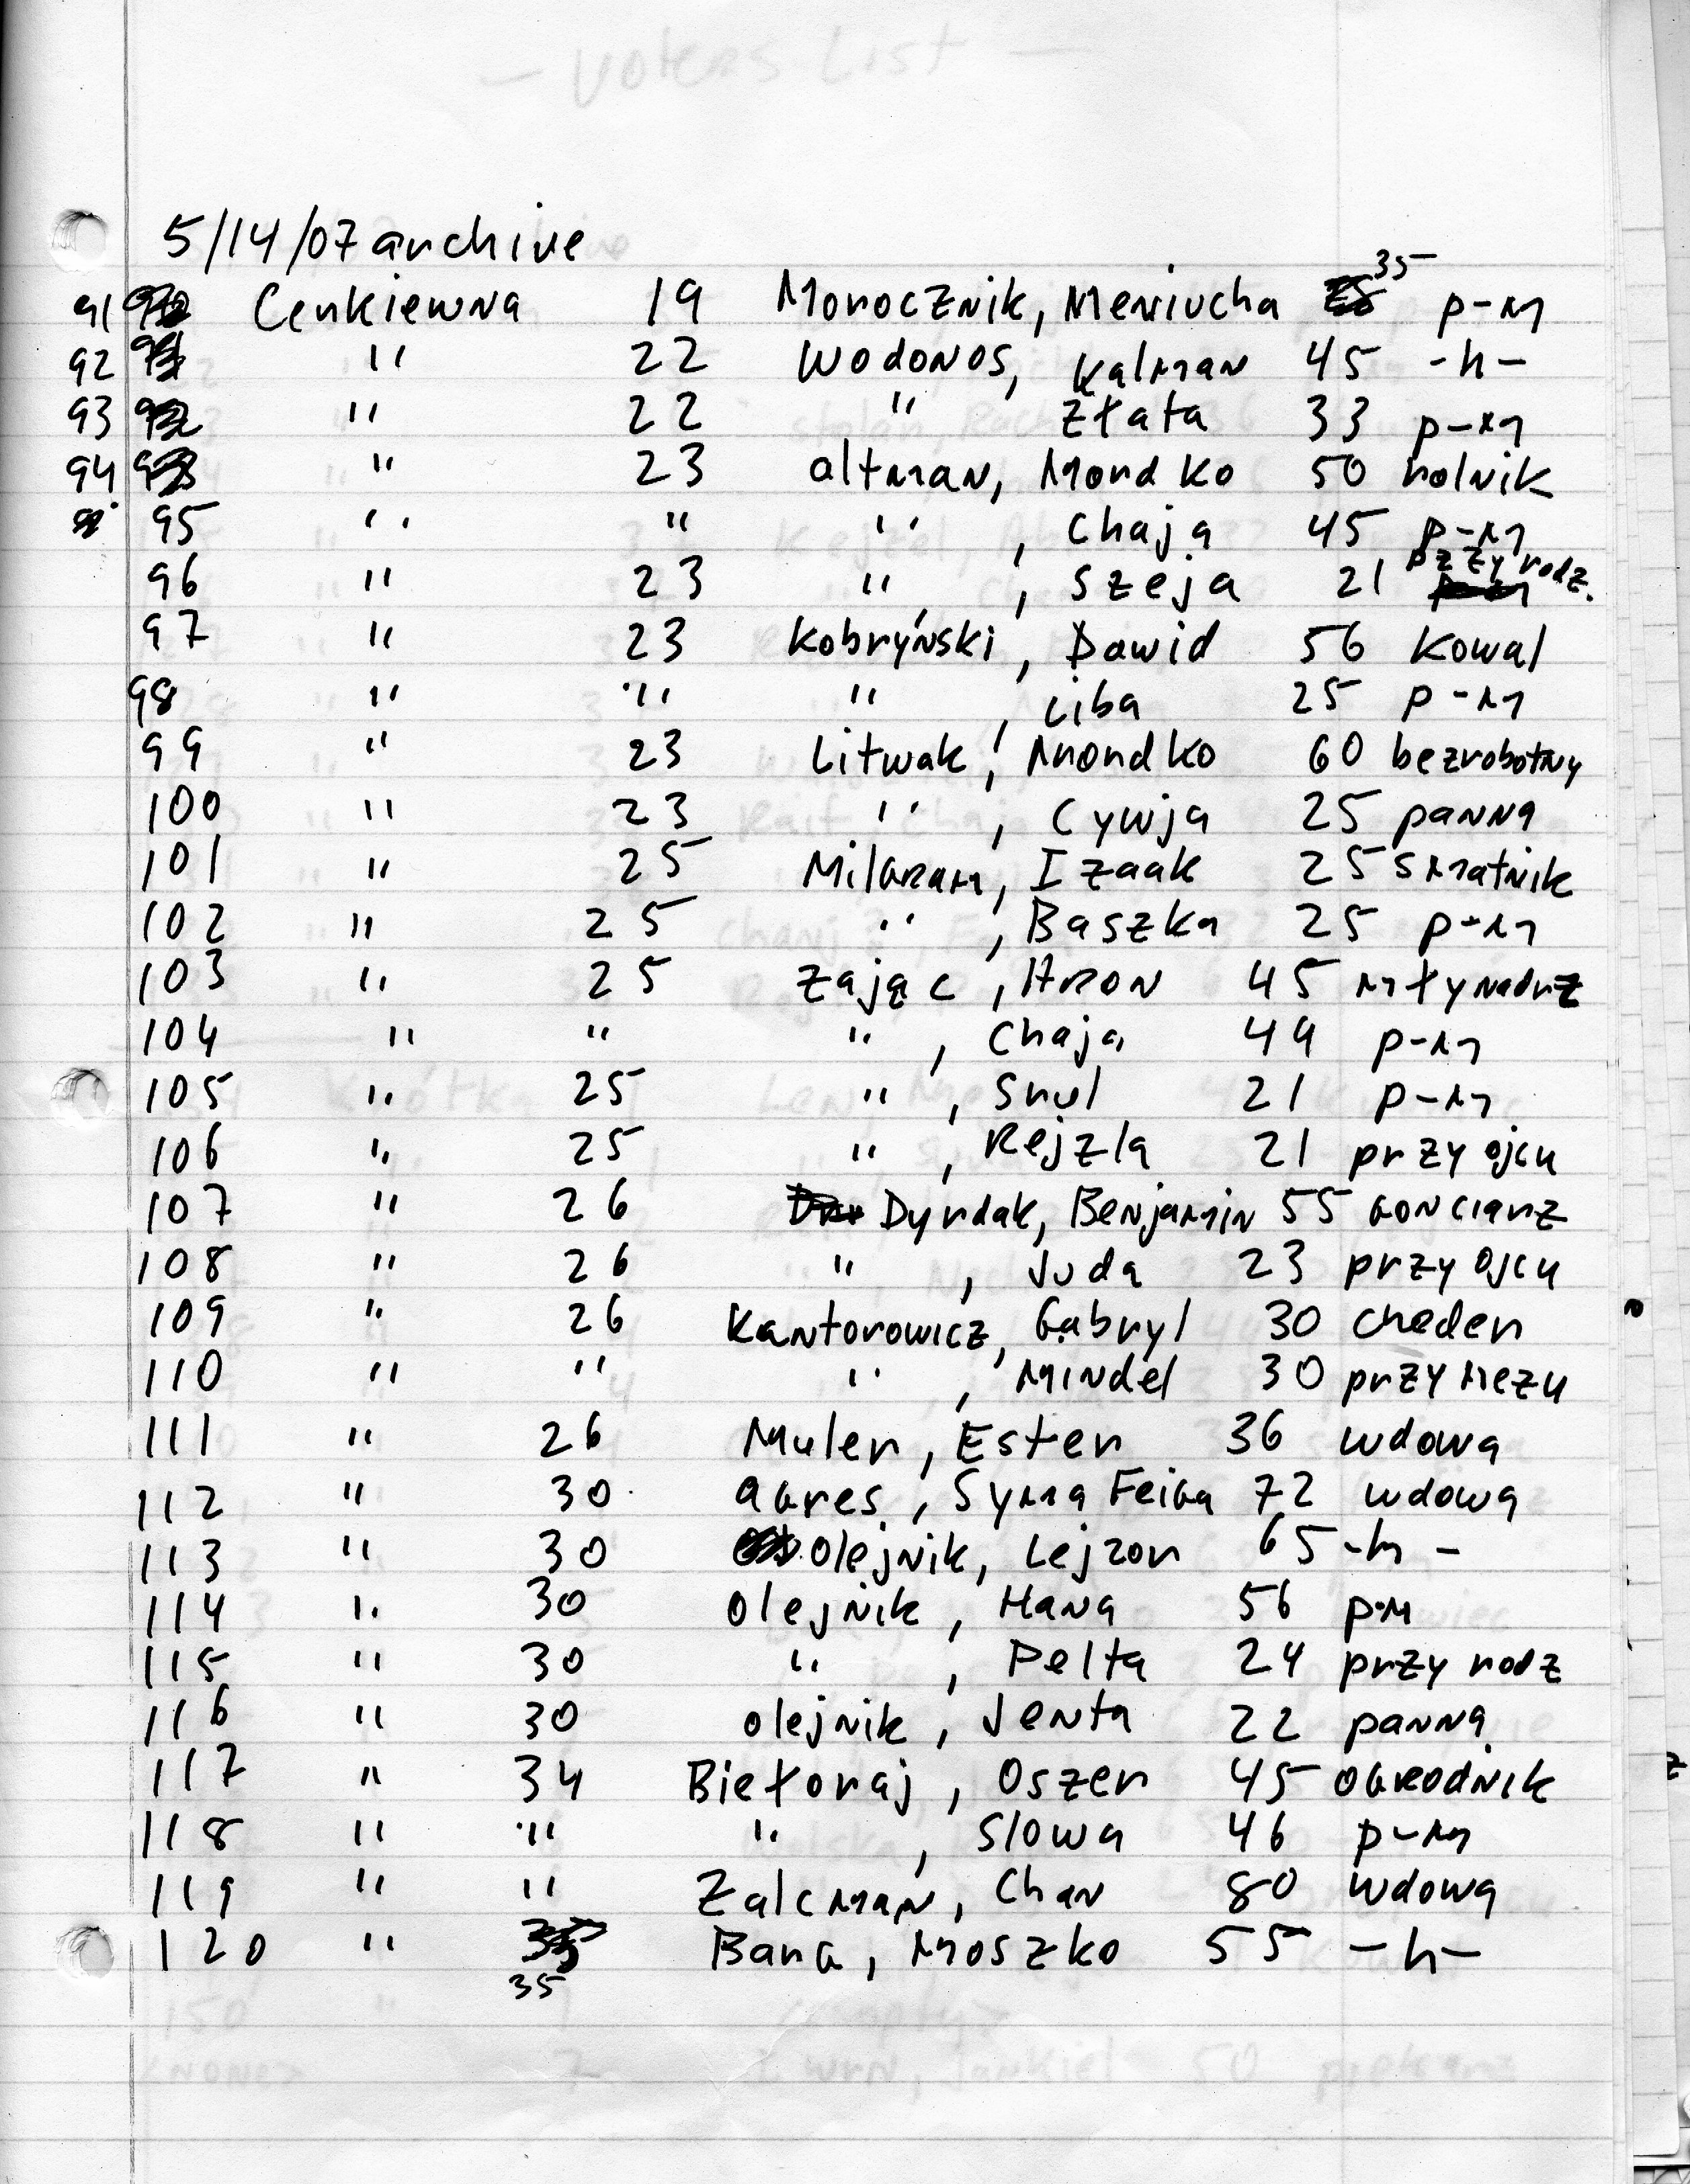 5/14/07 archive
91 Cerkiewna 19 Morocznik, Meniucha 35 p-m
92 " 22 Wodonos, Kalman 45 -h-
93 " 22 " Złata 33 p-m
94 " 23 Altman, Mordko 50 rolnik
95 " " " , Chaja 45 p-m
96 " 23 " , Szeja 21 przy rodz.
97 " 23 Kobryński, Dawid 56 Kowal
98 " " " , Liba 25 p-m
99 " 23 Litwak, Mordko 60 bezrobotny
100 " 23 " , Cywja 25 panna
101 " 25 Milgram, Izaak 25 smatnik
102 " 25 " , Baszka 25 p-m
103 " 25 Zając, Aron 45 młynarz
104 " " " , Chaja 49 p-m
105 " 25 " , Srul 21 p-m
106 " 25 " , Rejzla 21 przy ojcu
107 " 26 Dyrdak, Benjamin 55 gonciarz
108 " 26 " , Juda 23 przy ojcu
109 " 26 Kantorowicz, Gabryl 30 cheder
110 " " " , Mindel 30 przy mezu
111 " 26 Muler, Ester 36 wdowa
112 " 30 Agres, Syma Feiga 72 wdowa
113 " 30 Olejnik, Lejzor 65 -h-
114 " 30 Olejnik, Hana 56 p-m
115 " 30 " , Pelta 24 przy rodz
116 " 30 Olejnik, Jenta 22 panna
117 " 34 Biełoraj, Oszer 45 ogrodnik
118 " " " , Slowa 46 p-m
119 " " Zalcman, Chan 80 wdowa
120 " 35 Barg, Moszko 55 -h-